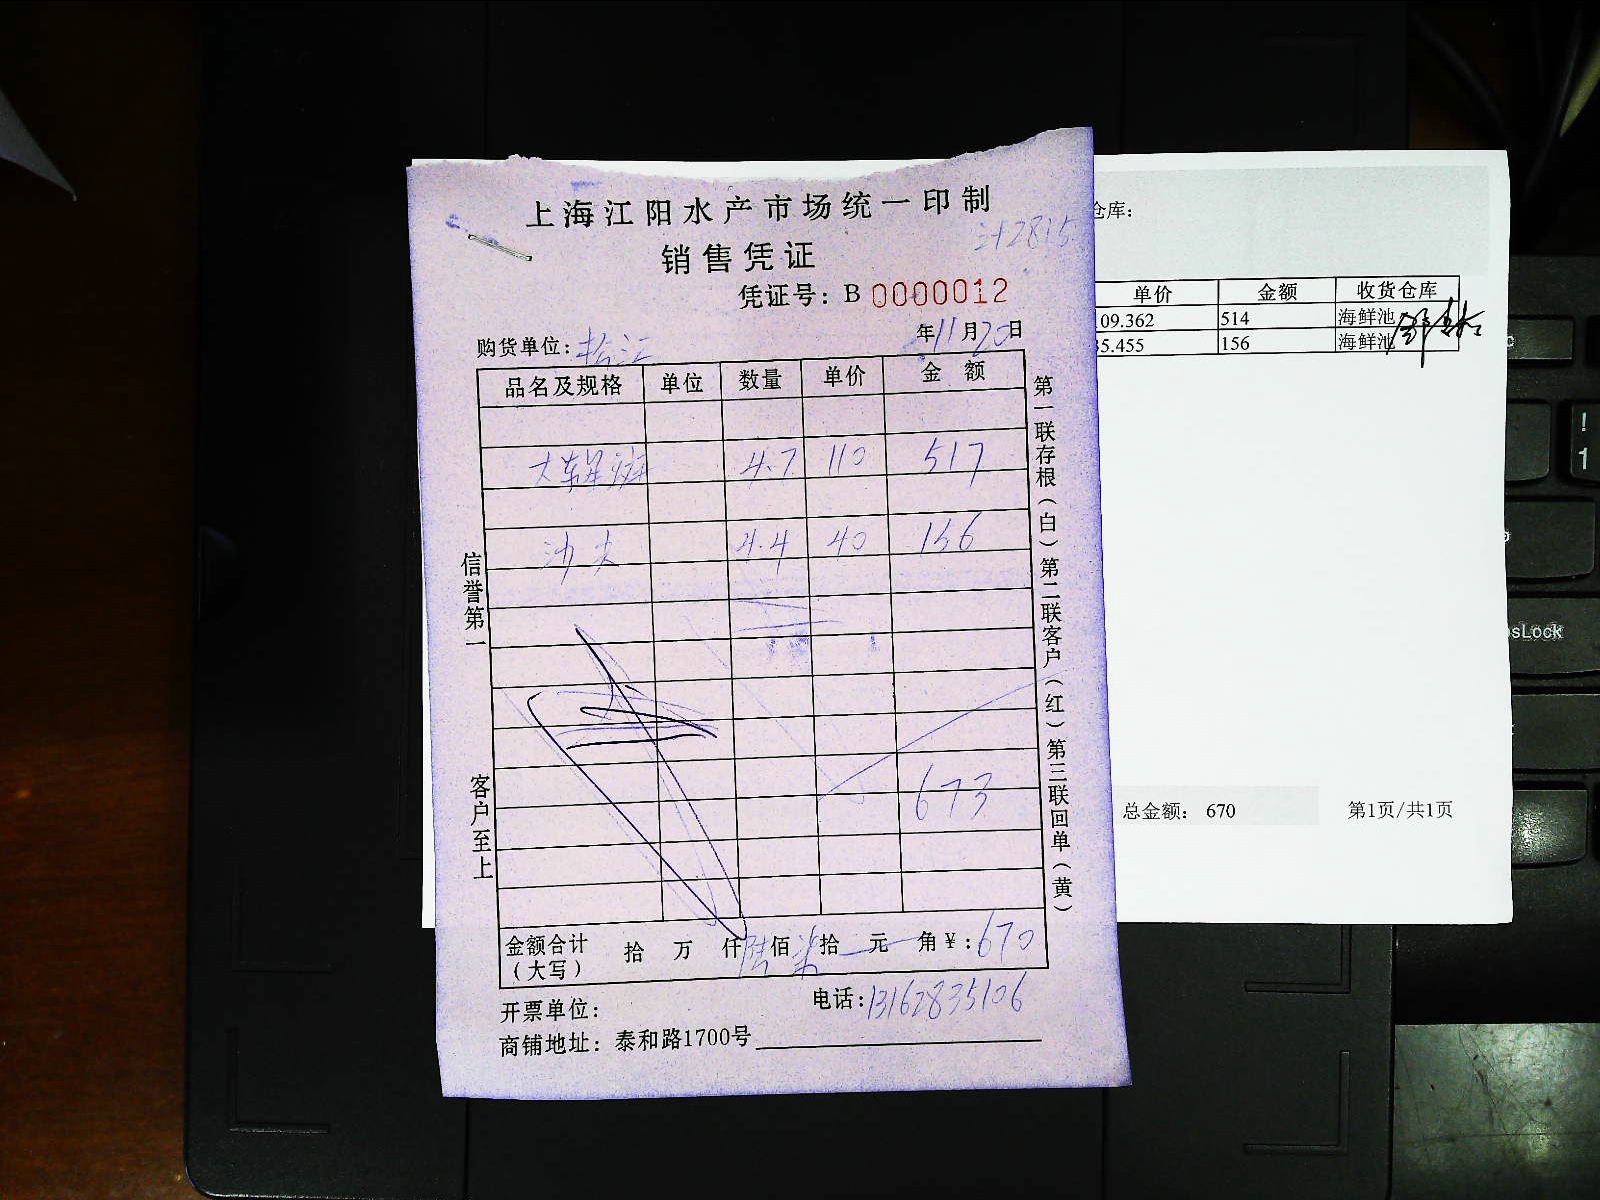 上海江阳水产市场统一印制
计2815
销售凭证
凭证号：B 0000012
购货单位：松江 年11月20日
品名及规格 单位 数量 单价 金额
大东星斑 4.7 110 517
沙尖 4.4 40 156
673
金额合计（大写） 拾 万 仟 陆佰 柒拾 元 角 ¥：670
开票单位： 电话：13162835106
商铺地址：泰和路1700号
信誉第一
客户至上
第一联存根（白）第二联客户（红）第三联回单（黄）
仓库：
单价 金额 收货仓库
09.362 514 海鲜池
5.455 156 海鲜池
总金额： 670 第1页/共1页
sLock
!
1